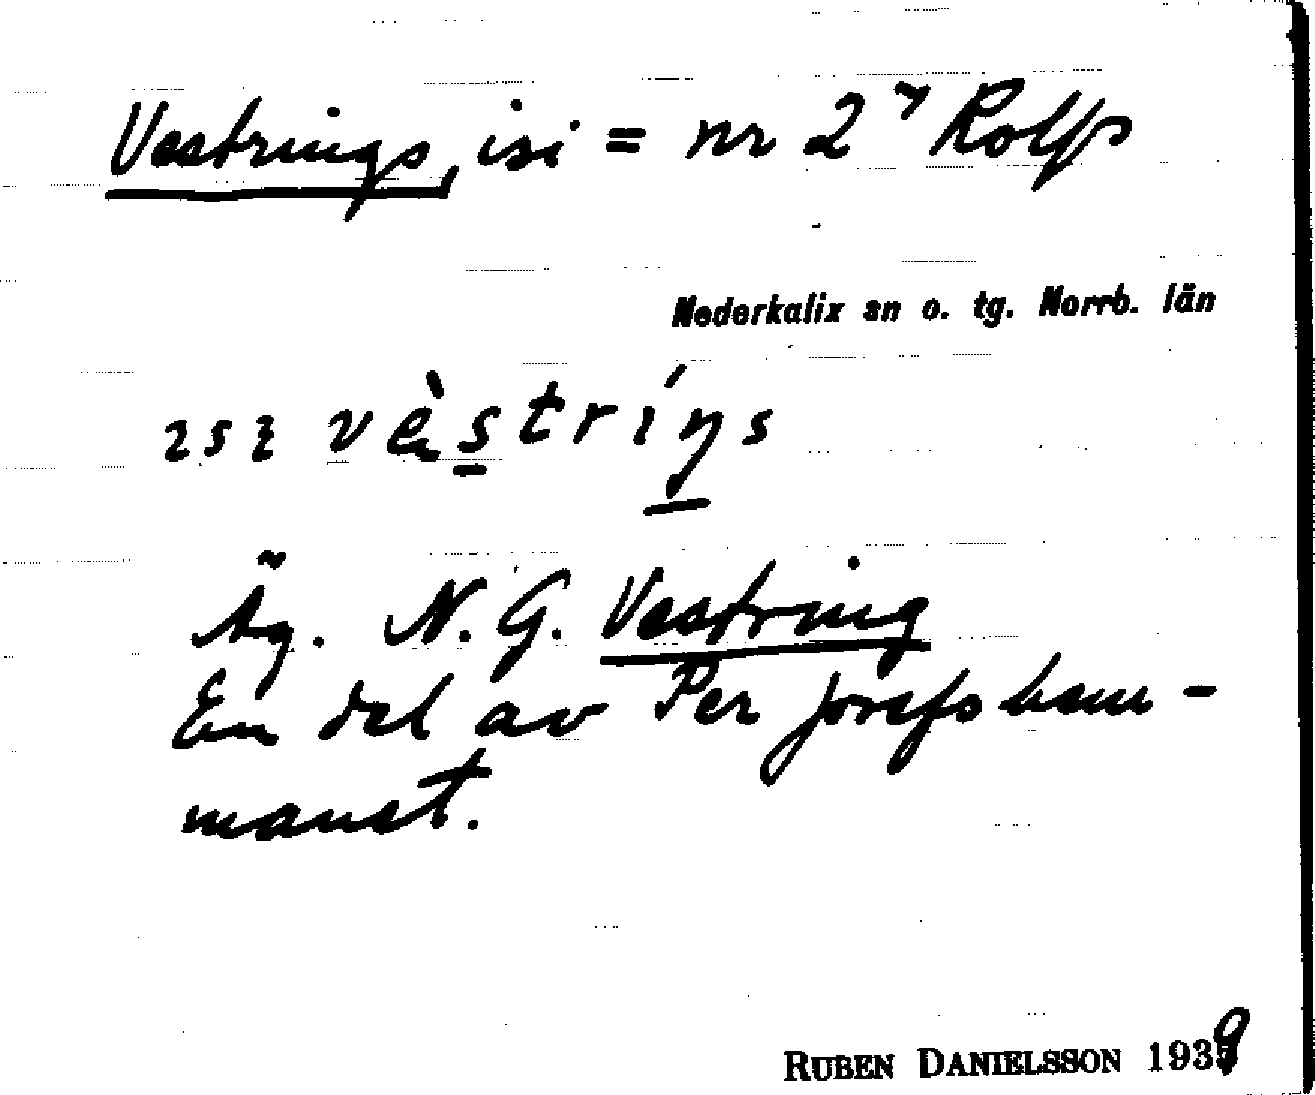 Vestrings, isi = nr 2⁷ Rolfs
Nederkalix sn o. tg. Norrb. län
vè̱stríŋs
Äg. N. G. Vestring
En del av Per Josefs hem-
manet.
RUBEN DANIELSSON 1939